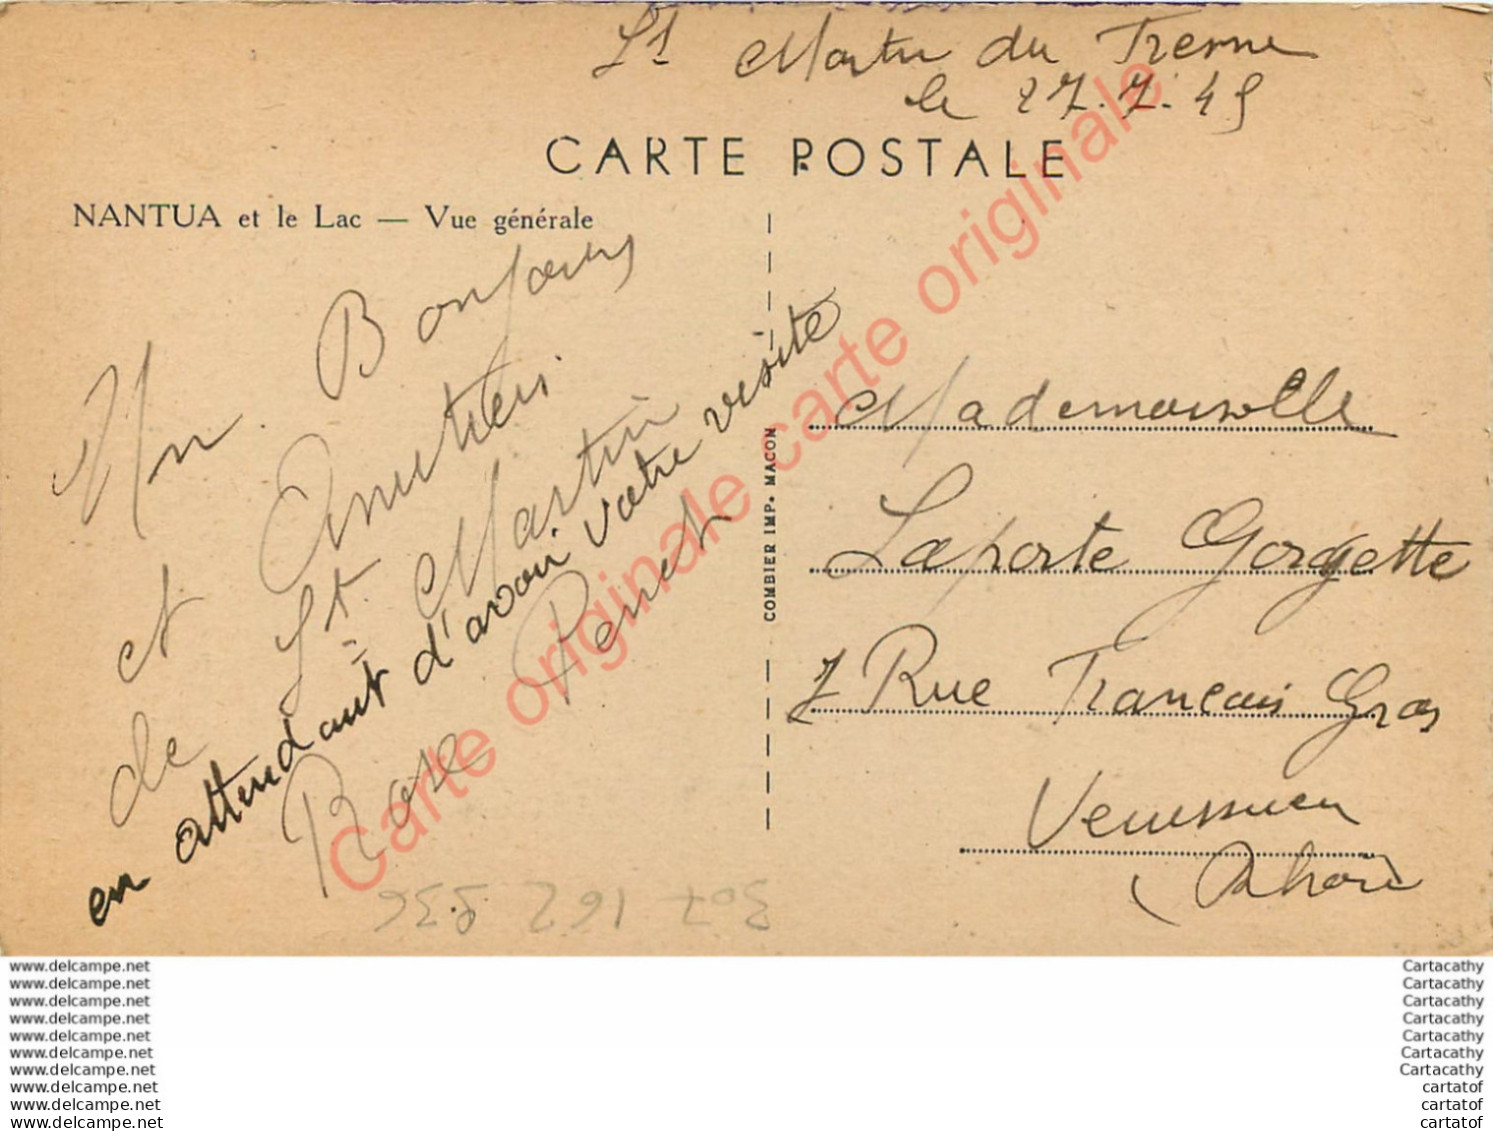 St Martin du Fresne
le 27.7.49
CARTE POSTALE
NANTUA et le Lac — Vue générale
Un Bonjour
et Amitiés
de St. Martin
en attendant d'avoir votre visite
Rose Perret
COMBIER IMP. MACON
Mademoiselle
Laporte Gorgette
7 Rue Francais Gros
Venissieu
(Rhone
307 162 836
Carte originale carte originale
www.delcampe.net
www.delcampe.net
www.delcampe.net
www.delcampe.net
www.delcampe.net
www.delcampe.net
www.delcampe.net
www.delcampe.net
www.delcampe.net
www.delcampe.net
Cartacathy
Cartacathy
Cartacathy
Cartacathy
Cartacathy
Cartacathy
Cartacathy
cartatof
cartatof
cartatof